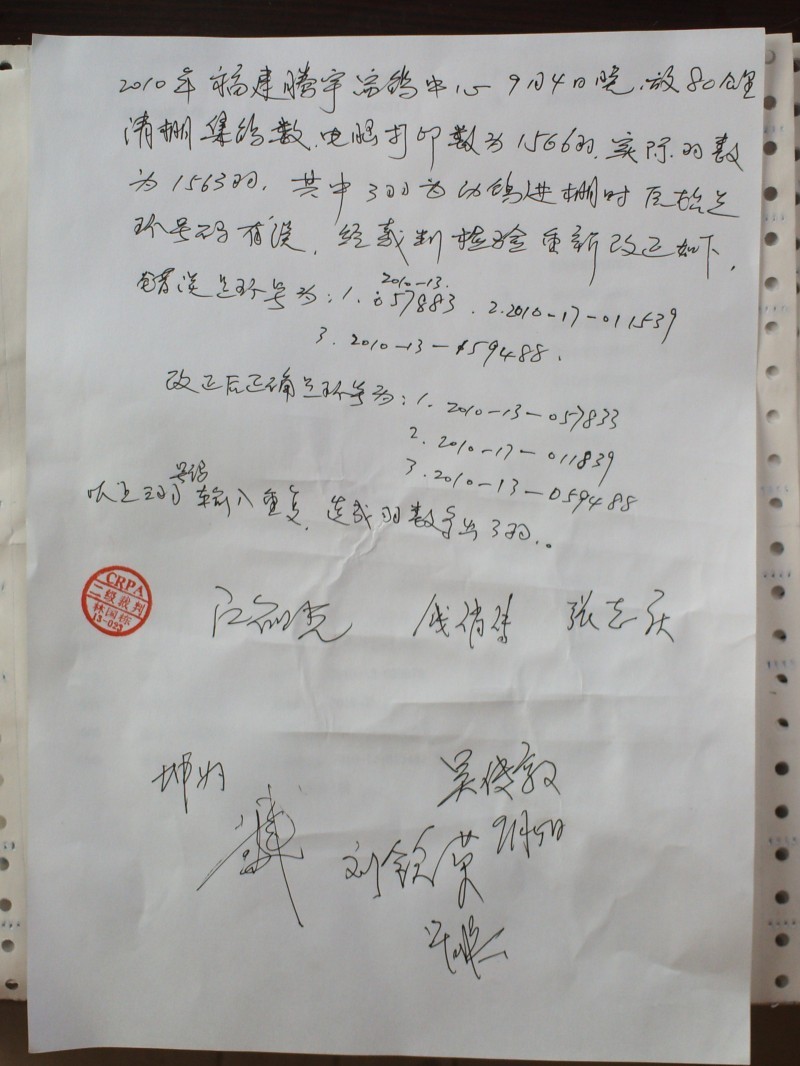 2010年福建腾宇赛鸽中心9月4日晚,放80公里
清棚集鸽数,电脑打印数为1566羽,实际羽数
为1563羽,其中3羽为幼鸽进棚时原始足
环号码有误,经裁判检验重新改正如下,
错误足环号为:1.2010-13.057883.2.2010-17-011539
3.2010-13-159488.
改正后正确足环号为:1.2010-13-057833
2.2010-17-011839
3.2010-13-059488
以上三羽号码输入重复,造成羽数多出3羽。
CRPA
二级裁判
林国栋
张志庆
吴俊敦
9月5日
刘钦荣